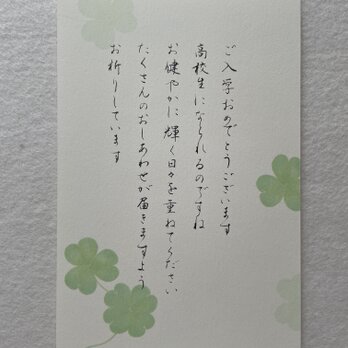 ご入学おめでとうございます
高校生になられるのですね
お健やかに輝く日々を重ねてください
たくさんのおしあわせが届きますよう
お祈りしています